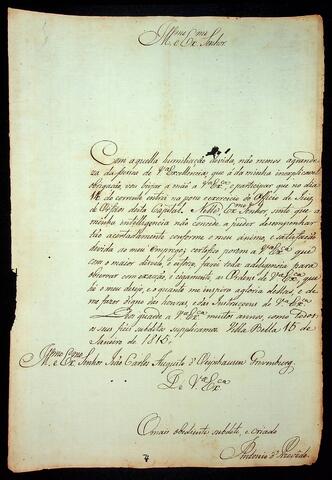 Illmo e Exmo Senhor.
Com aquella humiliação devida, não menos
da pessoa de Va Excellencia, que é da minha
obrigação, vou beijar a mão a Va Exca, e participar que no dia
14 do corrente entrei na posse e exercicio do Officio de Juiz
de Orfãos desta Capital. Exmo Senhor, sinto que a
minha intelligencia não concede a poder desempenhar
tão acertadamente conforme o meu animo, e satisfação
devida ao meu Emprego; restando, porem a Va Exca que
com o maior disvelo, e esforço, farei toda deligencia para
observar com exacção, e cegamente, as Ordens de Va Exca, que
hé o meu desejo, e o quanto me inspira a gloria dellas, e de
me fazer digno das honras, e das Instrucçoens de Va Exca.
Deos guarde a Va Exca muitos annos, como todos
os seus fieis subditos supplicamos. Villa Bella 15 de
Janeiro de 1815.
Illmo e Exmo Senhor João Carlos Augusto d'Oeynhausen Gravenberg
De Va Exca
O mais obediente subdito, e criado
Antonio d'Azevedo